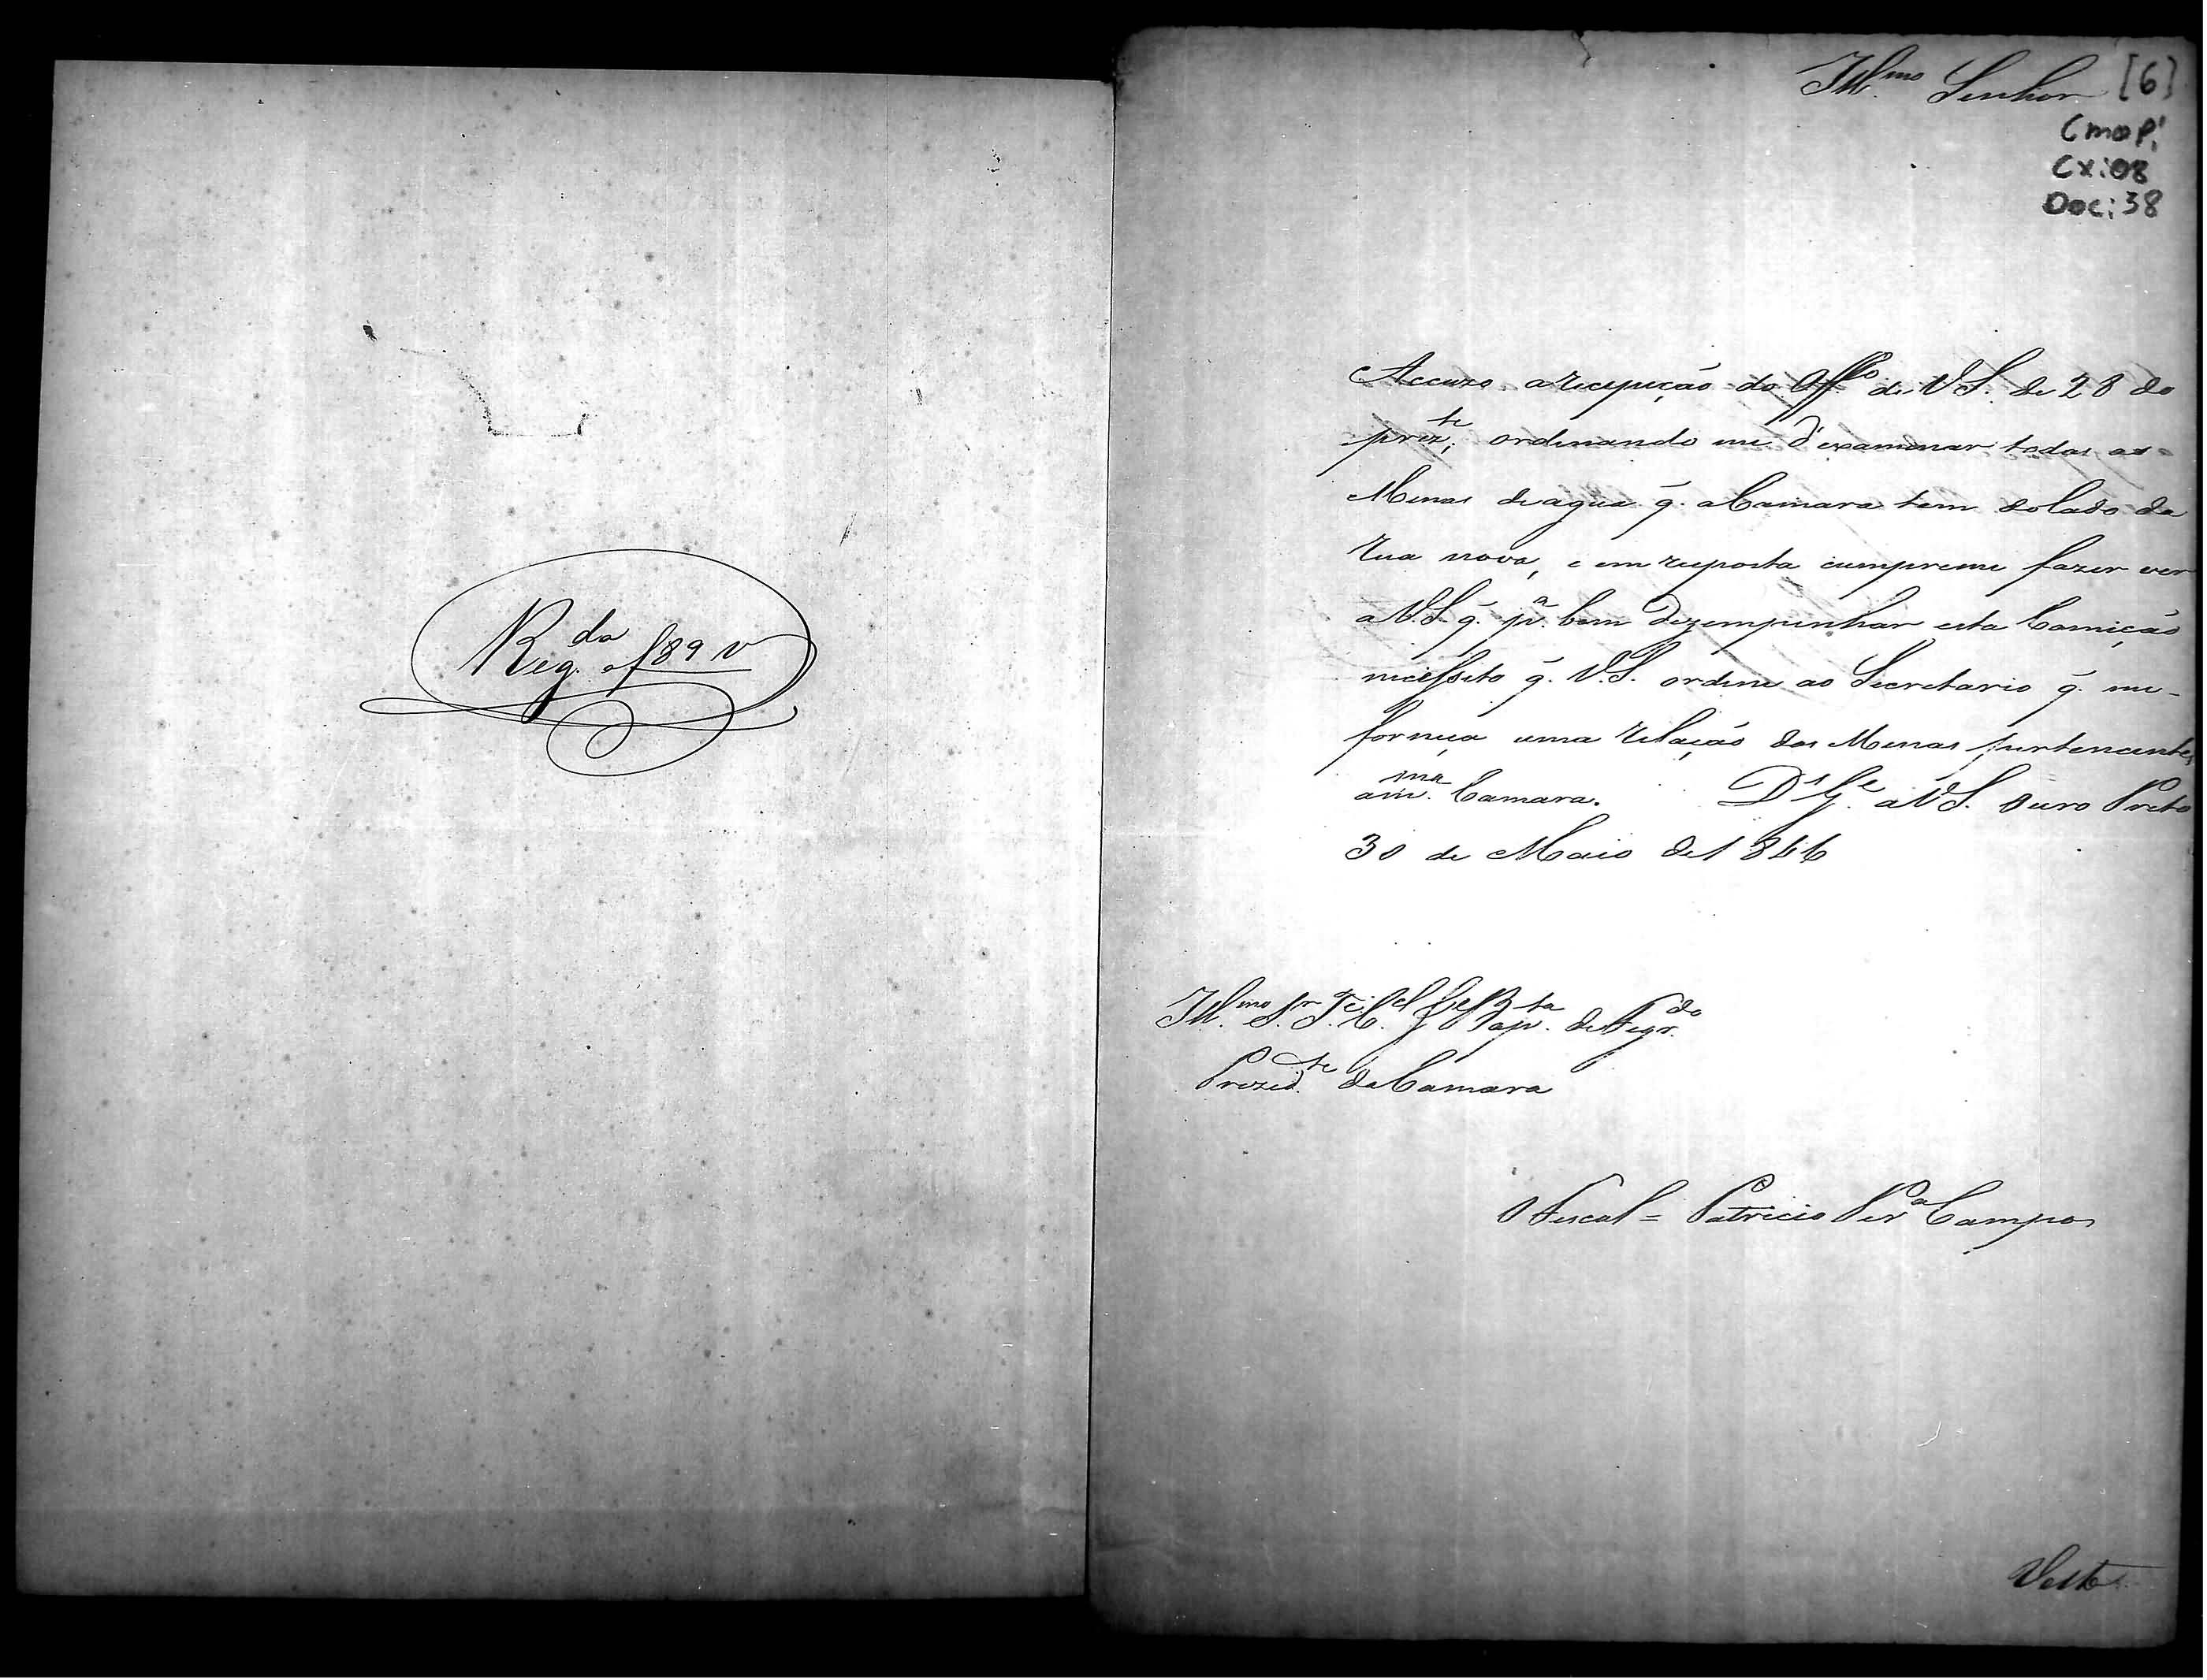 Reg.da af 89 v
Ill.mo Senhor [6]
Cmop!
Cx:08
Doc:38
Accuzo a recepução do Off.º de V S. de 28 do
prez.te, ordenando me d'examinar todas as
Minas de agua q̃. a Camara tem do lado da
rua nova, e em resposta cumpreme fazer ver
a V.S. q̃. p.ª bem dezempenhar esta Comição
necessito q̃. V.S. ordene ao Secretario q̃. me
forneça uma relação das Minas pertencentes
a m.ma Camara. D.s G.e a V S. Ouro Preto
30 de Maio de 1846
Ill.mo S.r T.e C.el Bap.ta de Figr.do
Prezid.te da Camara
O Fiscal = Patricio Per.ª Campos